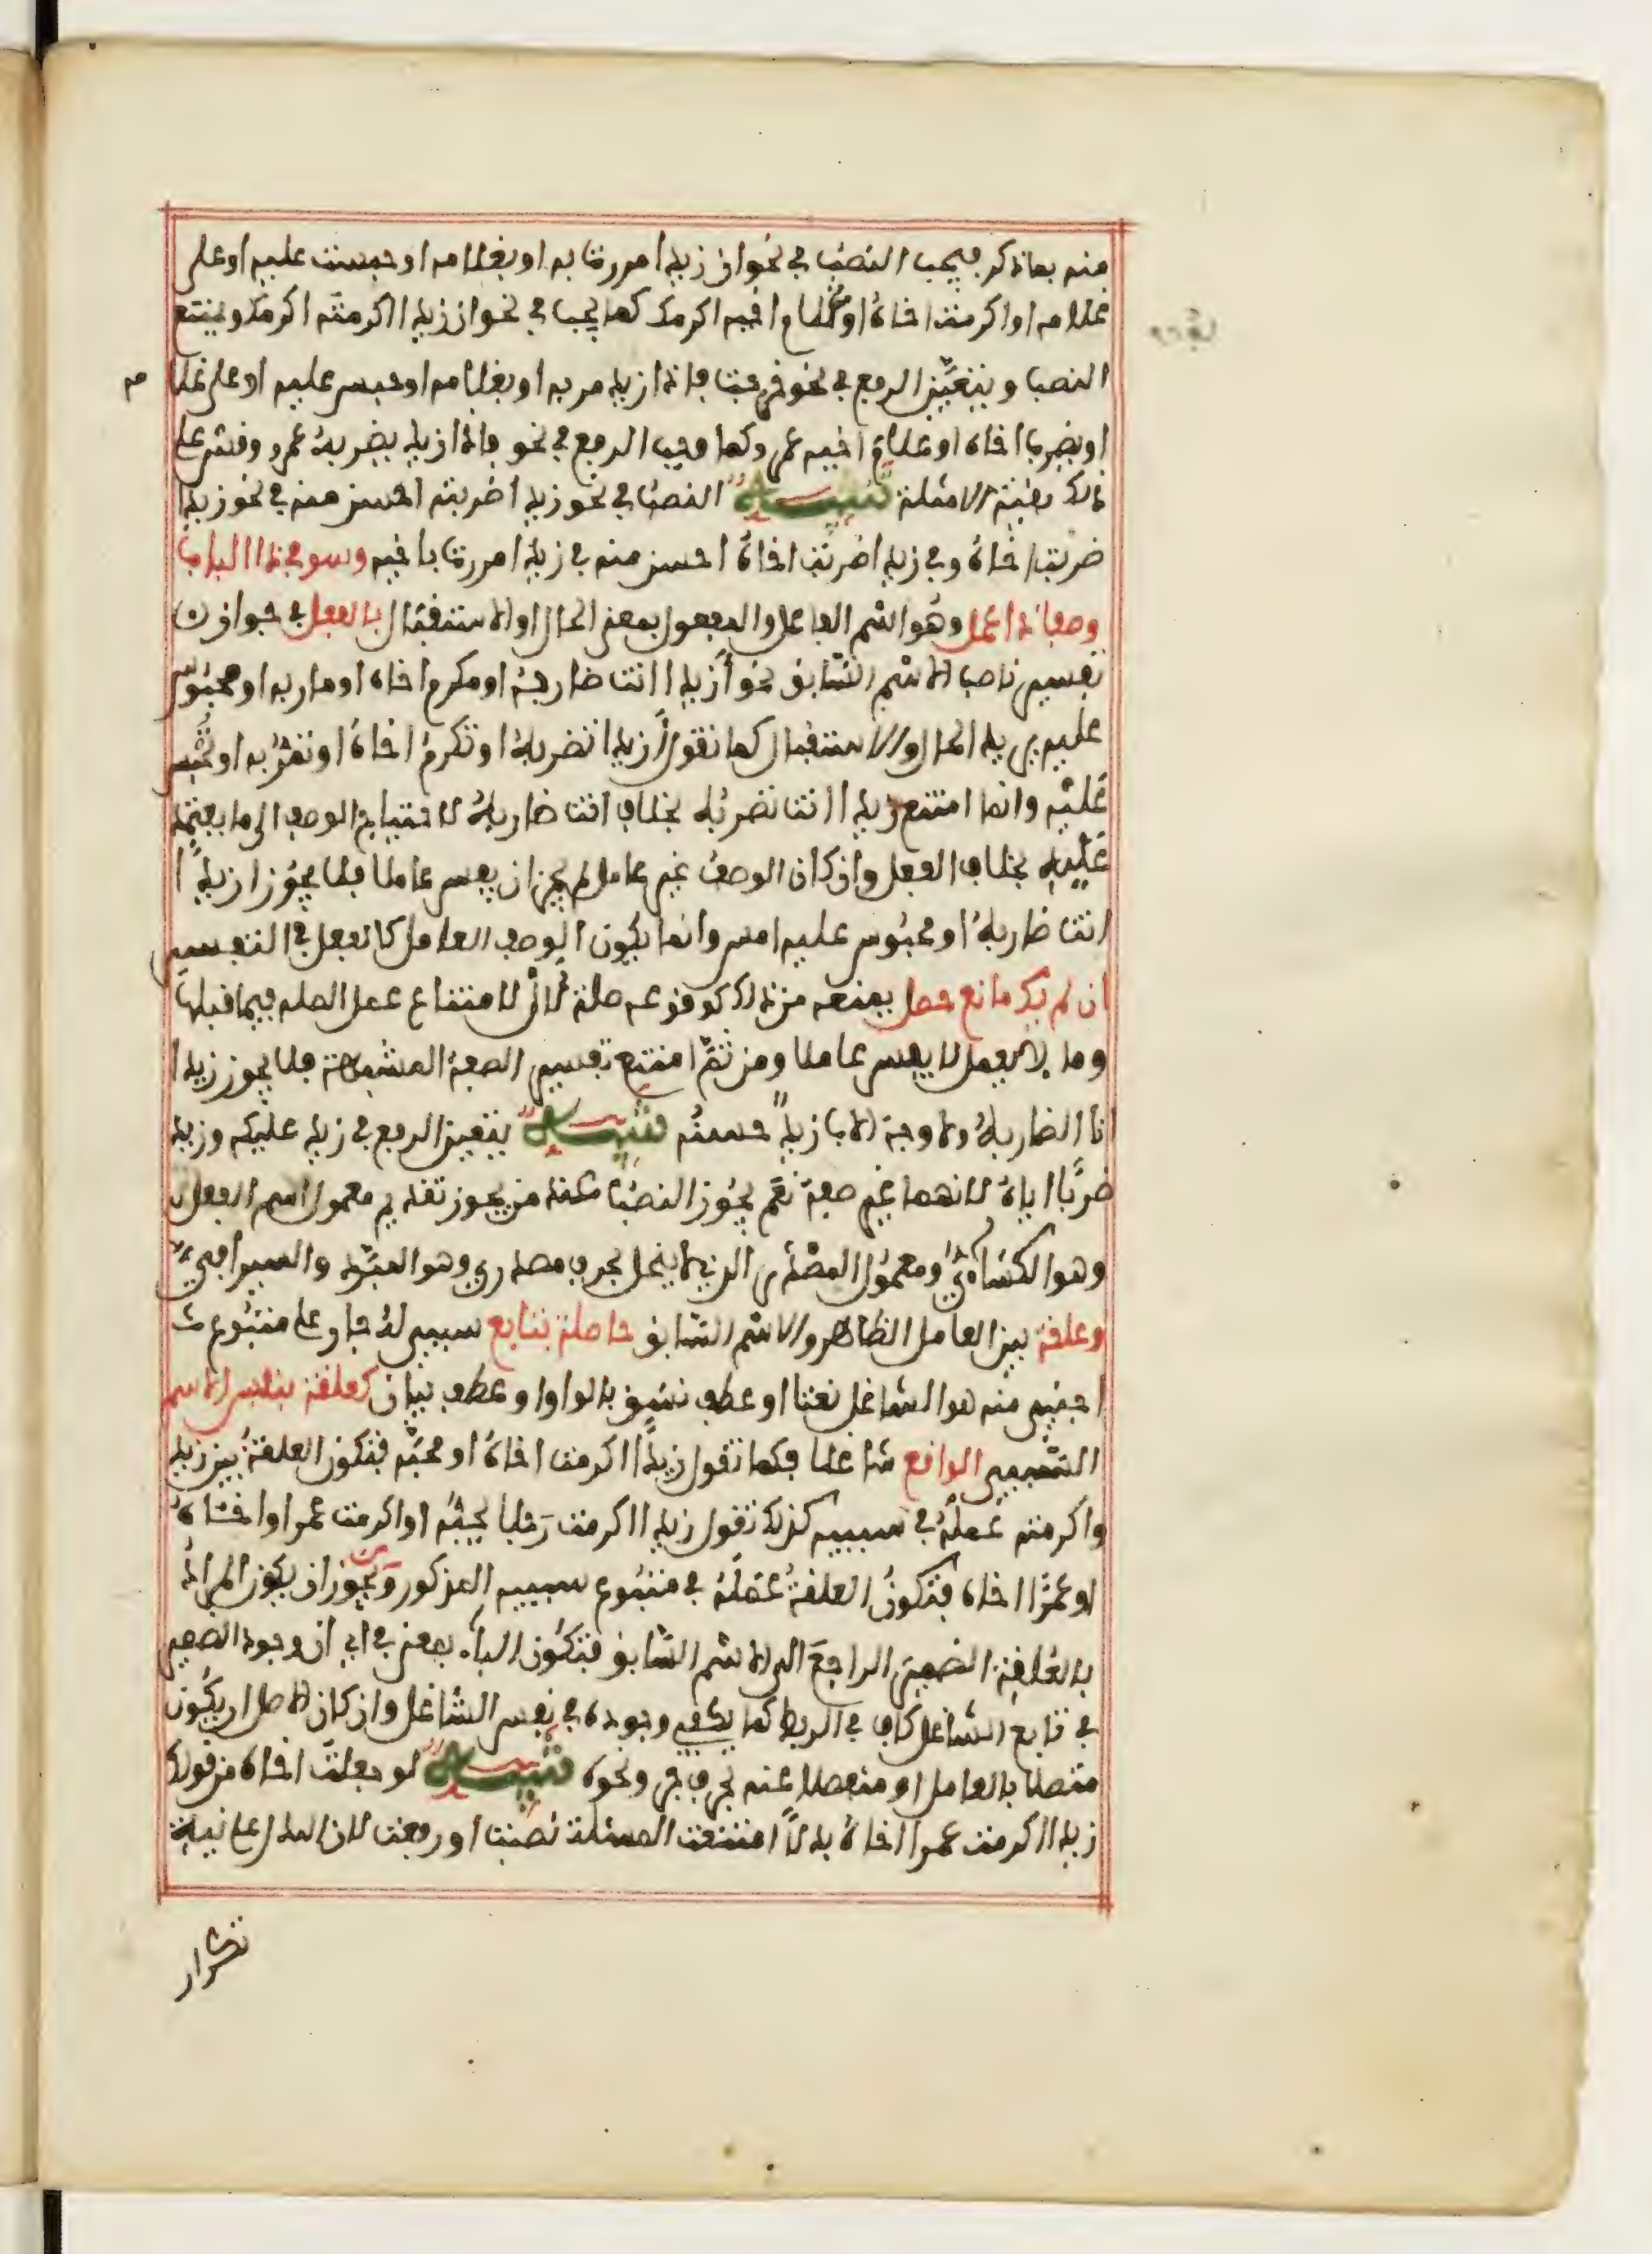 منه بما ذكر فيجب النصب في نحو ان زيدا مررت به او بغلامه او حبست عليه او على
غلامه او اكرمت اخاه او غلام اخيه اكرمك كما يجب في نحو ان زيدا اكرمته اكرمك ويمتنع
النصب ويتعين الرفع في نحو خرجت فاذا زيد مر به او بغلامه او حبس عليه او على غلا
مه
او يضرب اخاه او غلام اخيه عمرو كما وجب الرفع في نحو فاذا زيد يضربه عمرو وقس على
ذلك بقية الامثلة تنبيه النصب في نحو زيدا ضربته احسن منه في نحو زيدا
ضربت اخاه وفي زيدا ضربت اخاه احسن منه في زيدا مررت باخيه وسو في ذا الباب
وصفا ذا عمل وهو اسم الفاعل والمفعول بمعنى الحال او الاستقبال بالفعل في جواز
تفسير ناصب الاسم السابق نحو ازيدا انت ضاربه او مكرم اخاه او مار به او محبوس
عليه يريد الحال والاستقبال كما تقول ازيدا تضربه او تكرم اخاه او تمر به او تحبس
عليه وانما امتنع زيدا انت تضربه بخلاف انت ضاربه لاحتياج الوصف الى ما يعتمد
عليه بخلاف الفعل وان كان الوصف غير عامل لم يجز ان يفسر عاملا فلا يجوز ازيدا
انت ضاربه او محبوس عليه امس وانما يكون الوصف العامل كالفعل في التفسير
ان لم يك مانع حصل يمنعه من ذلك كوقوعه صلة لال لامتناع عمل الصله فيما قبلها
وما لا يعمل لا يفسر عاملا ومن ثم امتنع تفسير الصفة المشبهة فلا يجوز زيدا
انا الضاربه ولا وجه الاب زيد حسنه تنبيه يتعين الرفع في زيد عليكه وزيد
ضربا اياه لانهما غير صفة نعم يجوز النصب عند من يجوز تقديم معمول اسم الفعل
وهو الكسائي ومعمول المصدر الذي لا ينحل بحرف مصدري وهو المبرد والسيرافي
وعلقة بين العامل الظاهر والاسم السابق حاصلة بتابع سببي له جار على متبوع
اجنبي منه هو الشاغل نعتا او عطف نسق بالواو او عطف بيان كعلقة بنفس الاسم
السببي الواقع شاغلا فكما تقول زيدا اكرمت اخاه او محبه فتكون العلقة بين زيد
واكرمت عمله في سببيه كذلك تقول زيدا اكرمت رجلا يحبه او اكرمت عمرا واخاه
او عمرا اخاه فتكون العلقة عمله في متبوع سببيه المذكور ويجوز ان يكون المراد
بالعلقة الضمير الراجع الى الاسم السابق فتكون الباء بمعنى في اي ان وجود الضمير
في تابع الشاغل كاف في الربط كما يكفي وجوده في نفس الشاغل وان كان الاصل ان يكون
متصلا بالعامل او منفصلا عنه بحرف جر ونحوه تنبيه لو جعلت اخاه من قولك
زيدا اكرمت عمرا اخاه بدلا امتنعت المسئلة نصبت او رفعت لان البدل على نية
تكرار